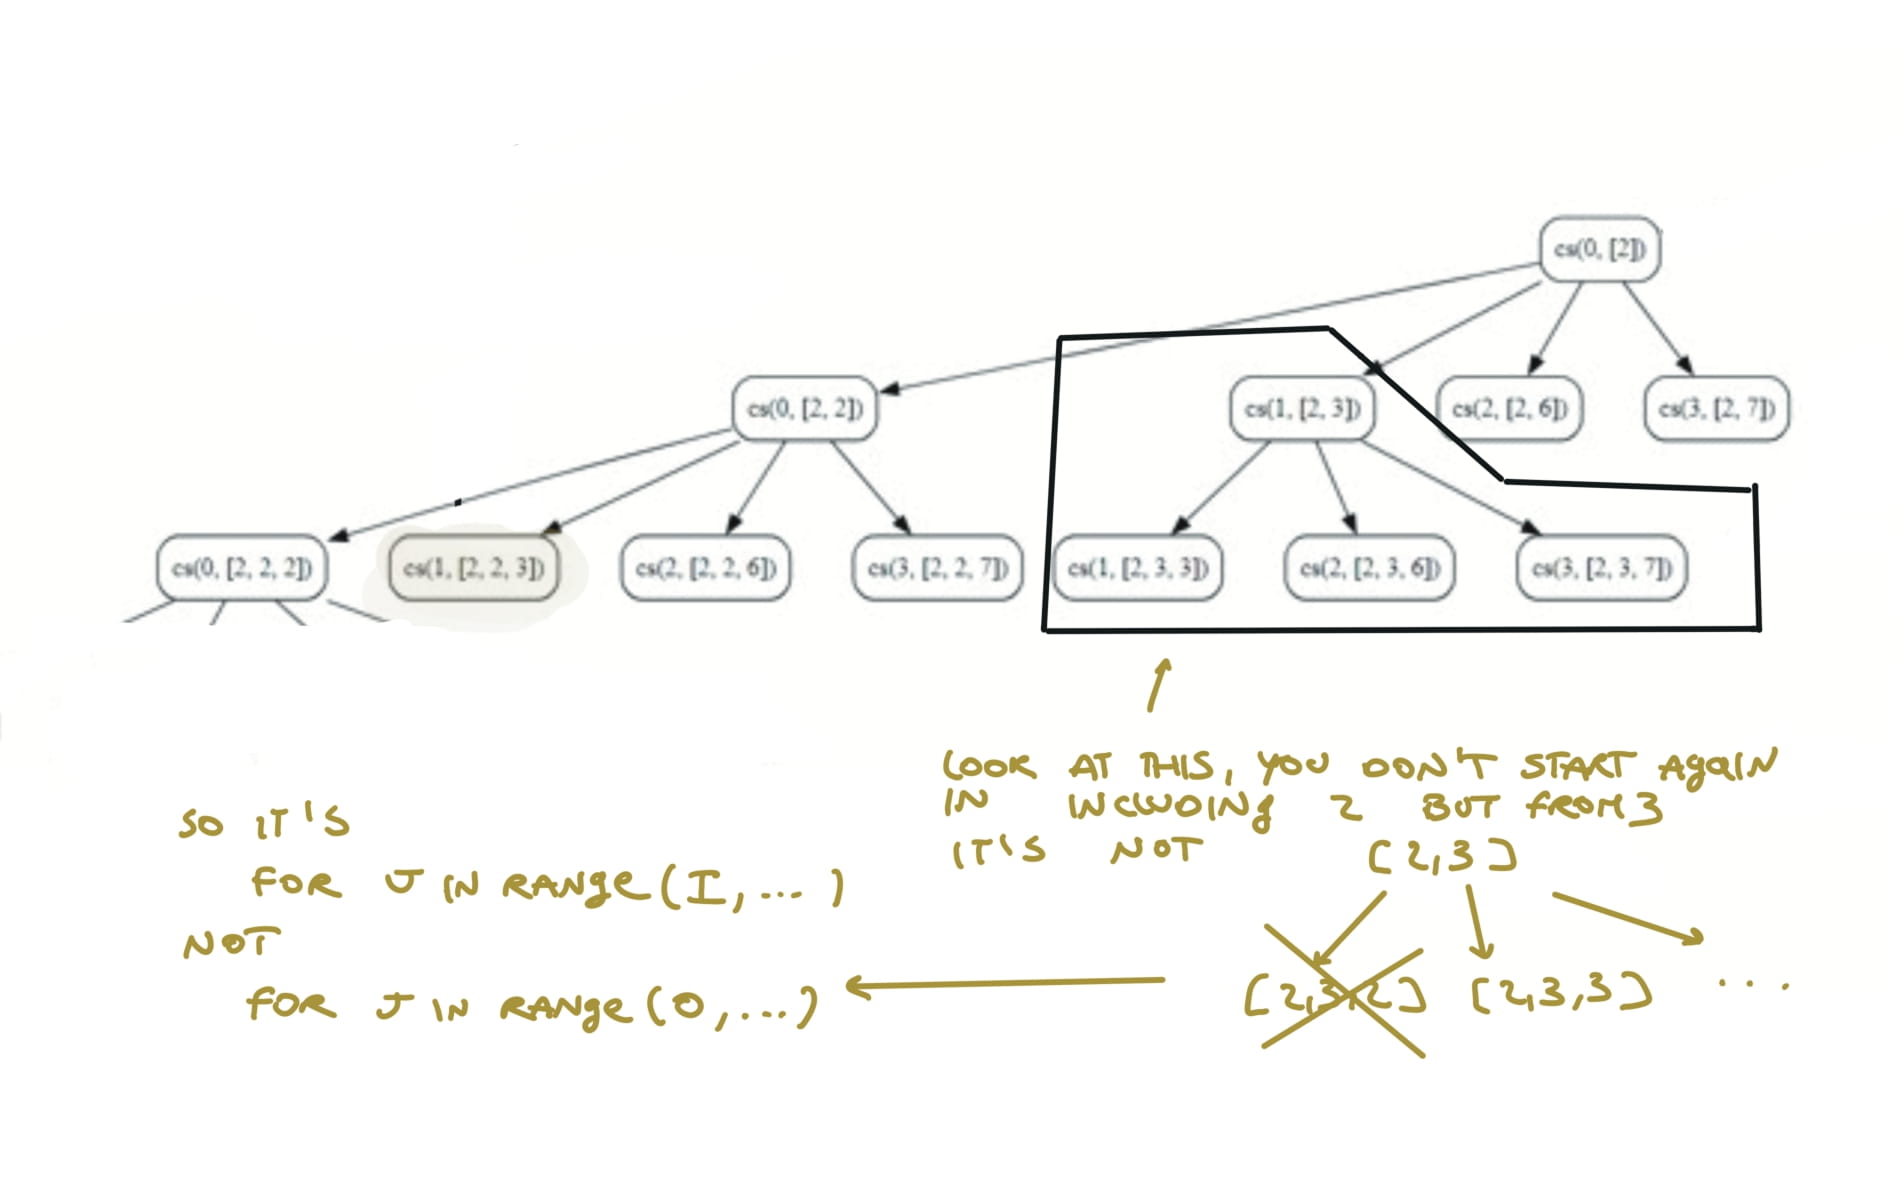 cs(0, [2])
cs(0, [2, 2])
cs(1, [2, 3])
cs(2, [2, 6])
cs(3, [2, 7])
cs(0, [2, 2, 2])
cs(1, [2, 2, 3])
cs(2, [2, 2, 6])
cs(3, [2, 2, 7])
cs(1, [2, 3, 3])
cs(2, [2, 3, 6])
cs(3, [2, 3, 7])
LOOK AT THIS, YOU DON'T START AgAIN
IN INCLUDINg 2 BUT FROM 3
IT'S NOT [2,3]
[2,3,2] [2,3,3] ...
SO IT'S
FOR J IN RANgE(I, ...)
NOT
FOR J IN RANgE(0, ...)